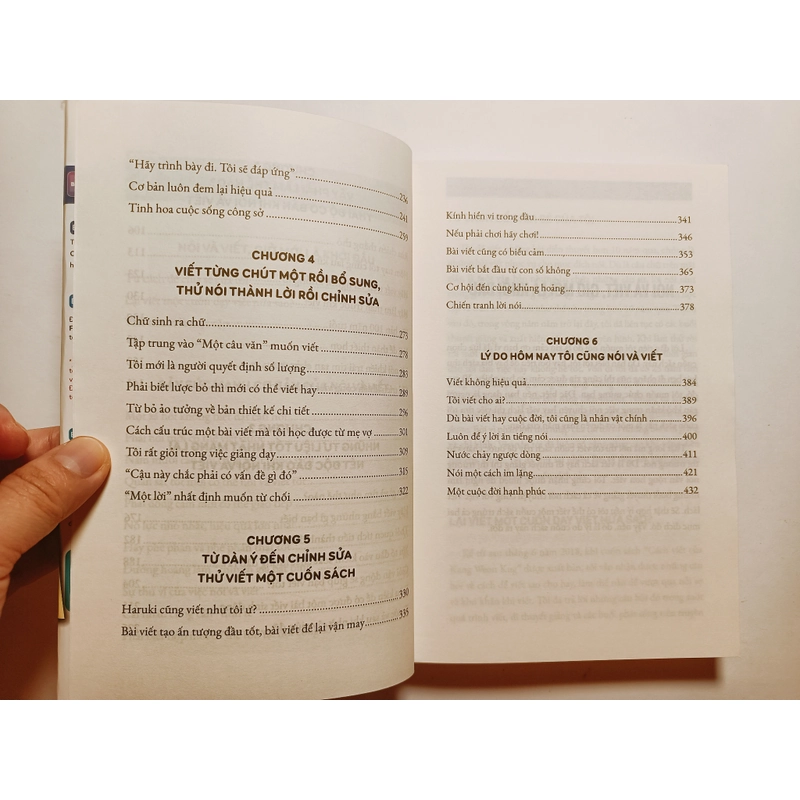 “Hãy trình bày đi. Tôi sẽ đáp ứng” 236
Cơ bản luôn đem lại hiệu quả 241
Tinh hoa cuộc sống công sở 259
CHƯƠNG 4
VIẾT TỪNG CHÚT MỘT RỒI BỔ SUNG,
THỬ NÓI THÀNH LỜI RỒI CHỈNH SỬA
Chữ sinh ra chữ 273
Tập trung vào “Một câu văn” muốn viết 278
Tôi mới là người quyết định số lượng 283
Phải biết lược bỏ thì mới có thể viết hay 289
Từ bỏ ảo tưởng về bản thiết kế chi tiết 296
Cách cấu trúc một bài viết mà tôi học được từ mẹ vợ 301
Tôi rất giỏi trong việc giảng dạy 309
“Cậu này chắc phải có vấn đề gì đó” 315
“Một lời” nhất định muốn từ chối 322
CHƯƠNG 5
TỪ DÀN Ý ĐẾN CHỈNH SỬA
THỬ VIẾT MỘT CUỐN SÁCH
Haruki cũng viết như tôi ư? 330
Bài viết tạo ấn tượng đầu tốt, bài viết để lại vận may 335
Kính hiển vi trong đầu 341
Nếu phải chơi hãy chơi! 346
Bài viết cũng có biểu cảm 353
Bài viết bắt đầu từ con số không 365
Cơ hội đến cùng khủng hoảng 373
Chiến tranh lời nói 378
CHƯƠNG 6
LÝ DO HÔM NAY TÔI CŨNG NÓI VÀ VIẾT
Viết không hiệu quả 384
Tôi viết cho ai? 389
Dù bài viết hay cuộc đời, tôi cũng là nhân vật chính 396
Luôn để ý lời ăn tiếng nói 400
Nước chảy ngược dòng 411
Nói một cách im lặng 421
Một cuộc đời hạnh phúc 432